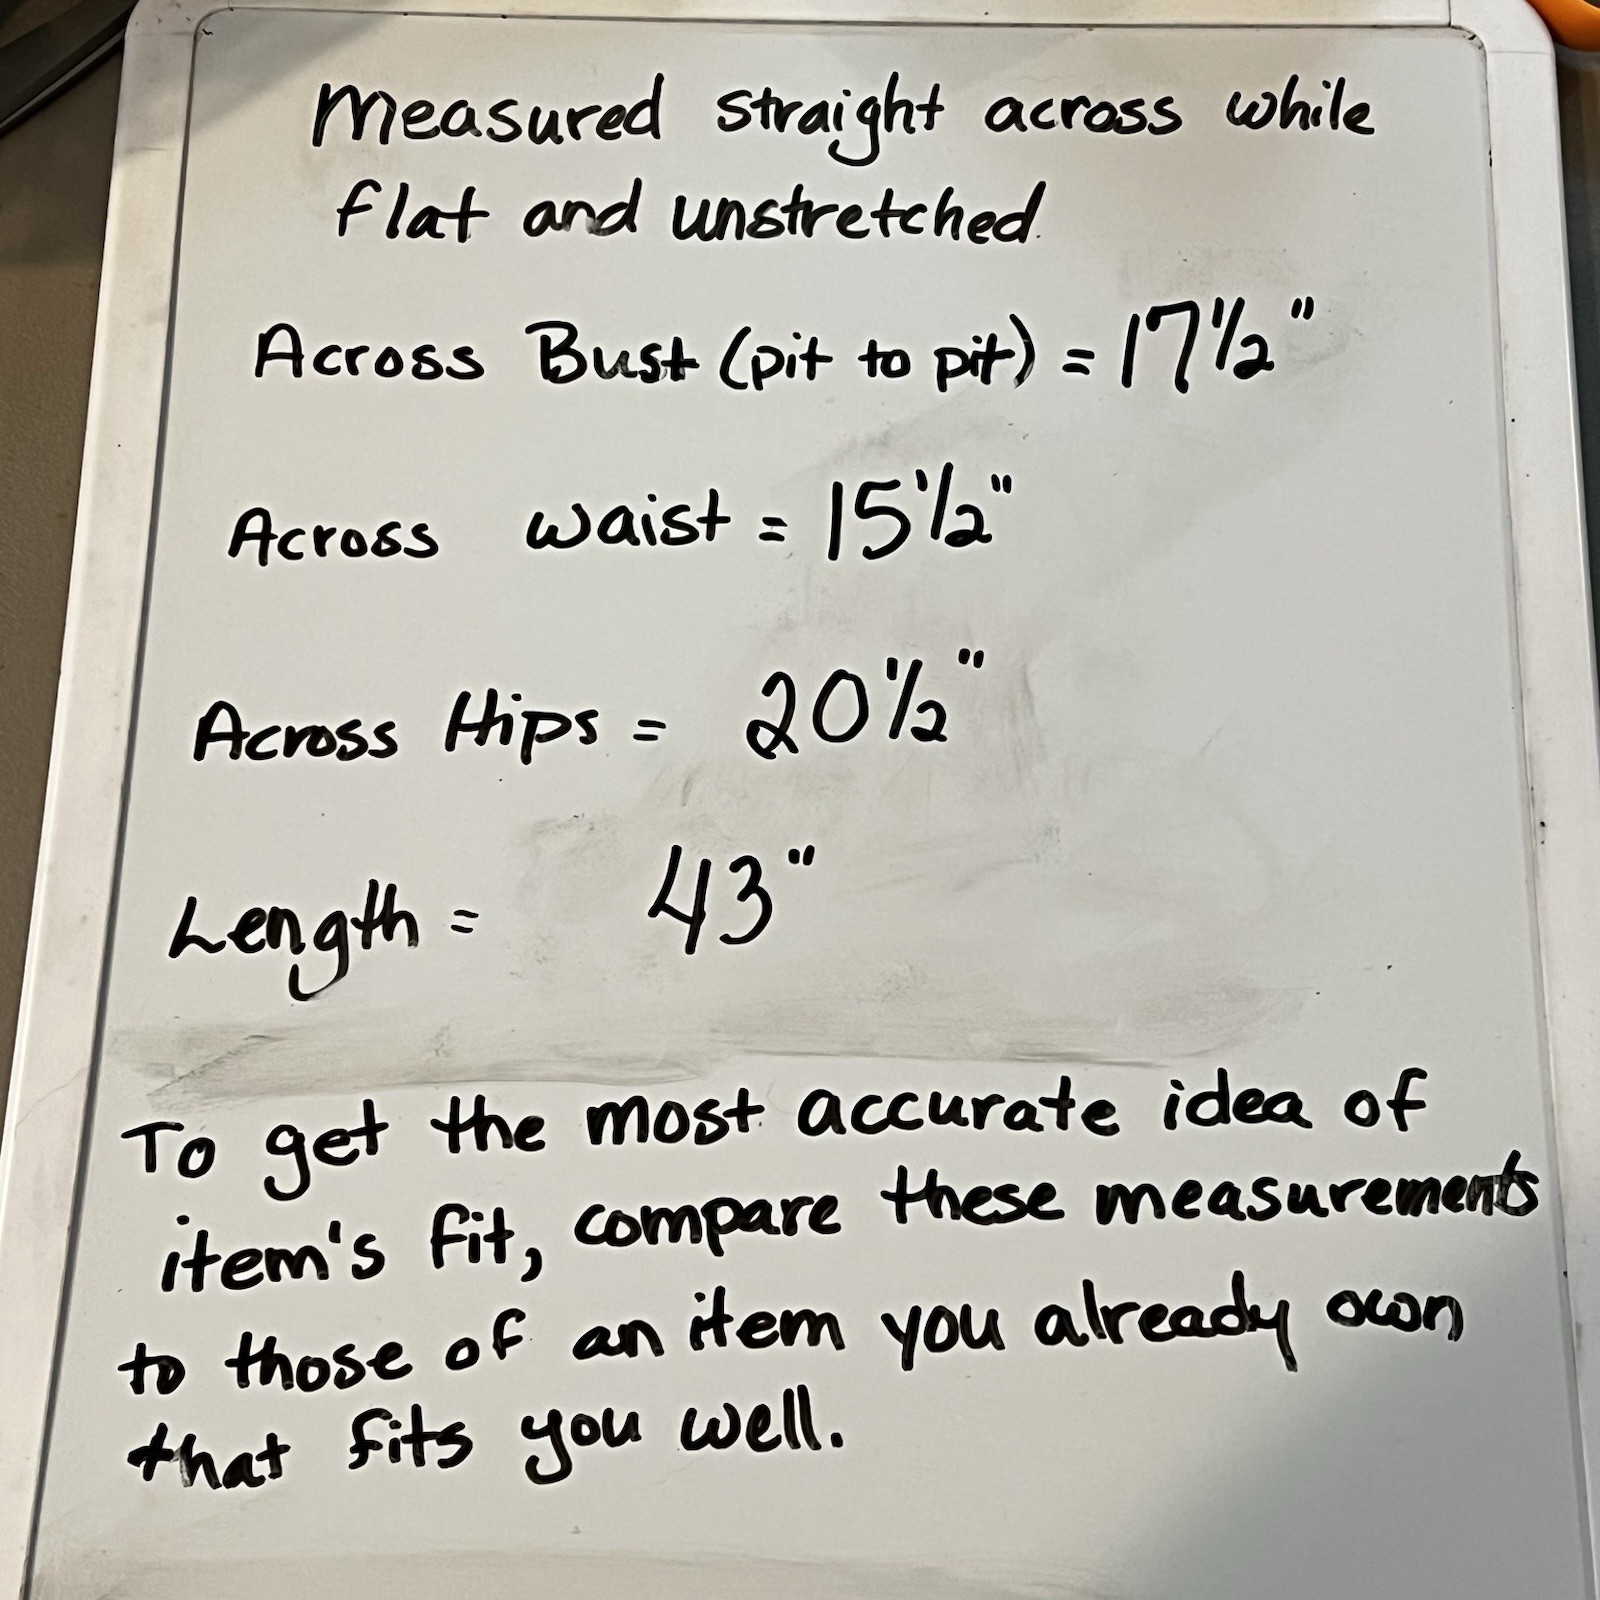 Measured straight across while
flat and unstretched.
Across Bust (pit to pit) = 17 1/2"
Across waist = 15 1/2"
Across Hips = 20 1/2"
Length = 43"
To get the most accurate idea of
item's fit, compare these measurements
to those of an item you already own
that fits you well.